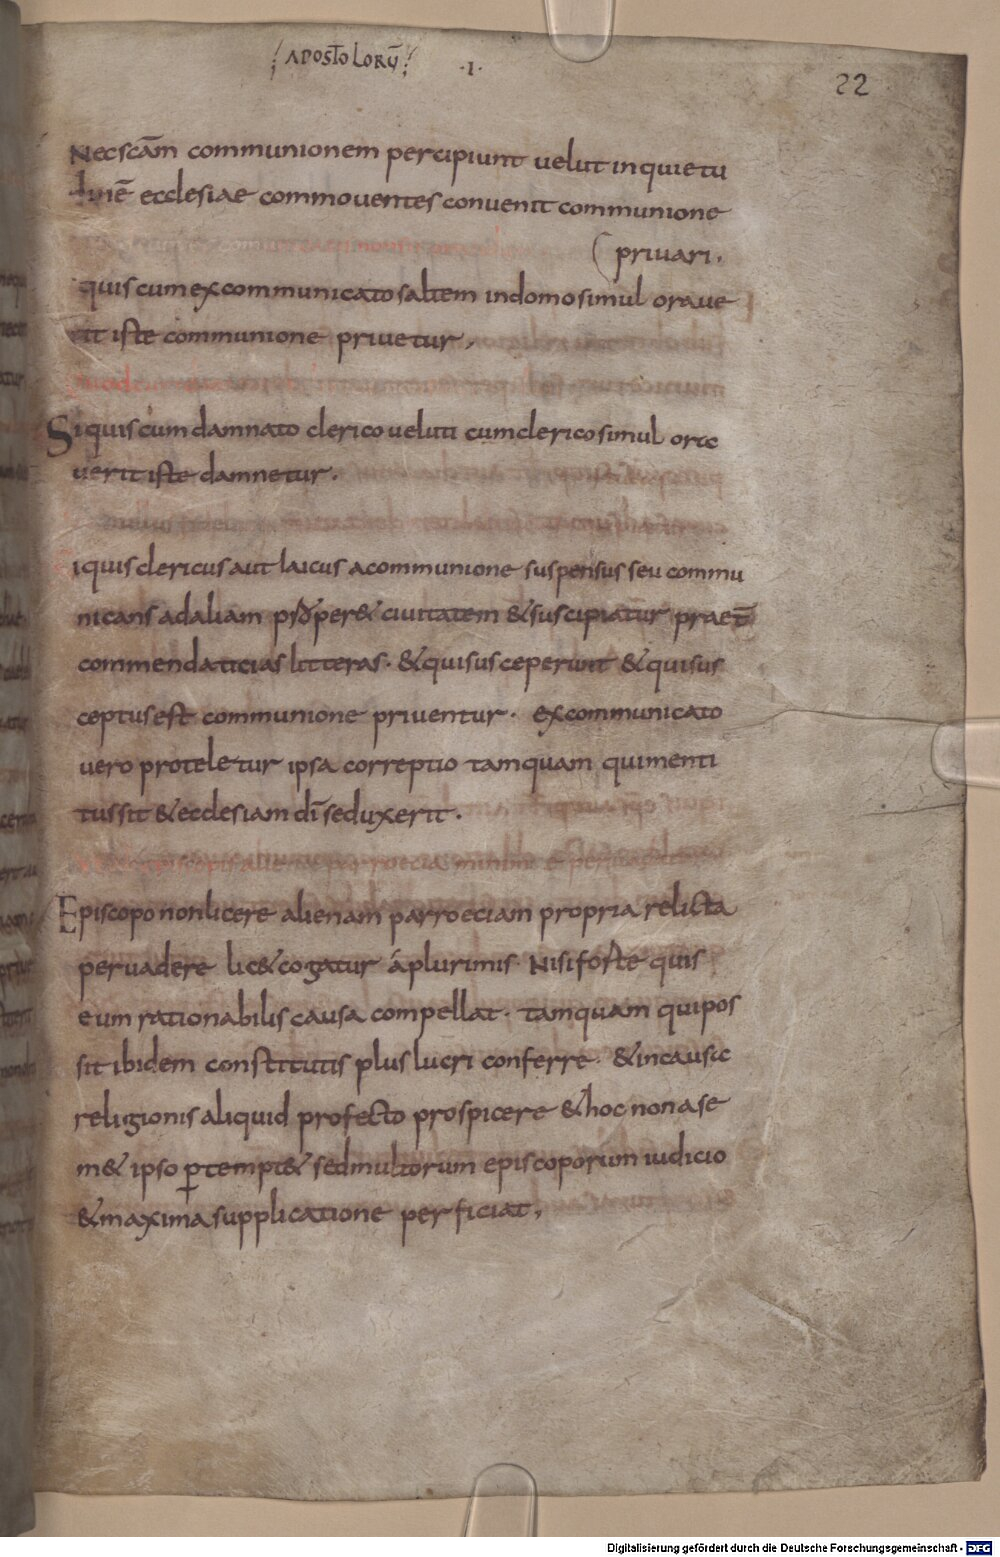 APOSTOLORŪ · I ·
22
Necscām communionem percipiunt uelut inquietu
dinē ecclesiae commouentes conuenit communione
priuari.
quis cum excommunicato saltem in domo simul oraue
rit iste communione priuetur.
Si quis cum damnato clerico ueluti cum clerico simul ora
uerit iste damnetur.
i quis clericus aut laicus a communione suspensus seu commu
nicans ad aliam properet ciuitatem & suscipiatur praet̄
commendaticias litteras · & qui susceperunt & qui sus
ceptus est communione priuentur · excommunicato
uero proteletur ipsa correptio tamquam qui menti
tus sit & ecclesiam dī seduxerit ·
Episcopo non licere alienam parroeciam propria relicta
peruadere lic& cogatur á plurimis · Nisi forte quis
eum rationabilis causa compellat · tamquam qui pos
sit ibidem constitutis plus lucri conferre · & in causa
religionis aliquid profecto prospicere & hoc non a se
m& ipso ꝑtempt& sed multorum episcoporum iudicio
& maxima supplicatione perficiat.
Digitalisierung gefördert durch die Deutsche Forschungsgemeinschaft - DFG